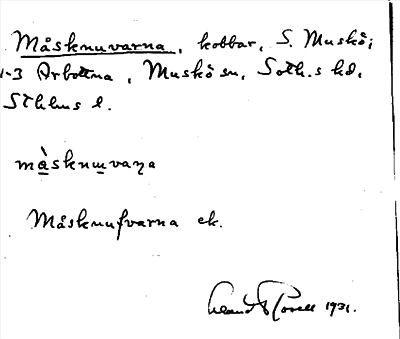 Måsknuvarna, kobbar, S. Muskö;
1-3 Arbottna, Muskö sn, Soth.s hd,
Sthlms l.
måsknɯvaɳa
Måsknufvarna ek.
1931.